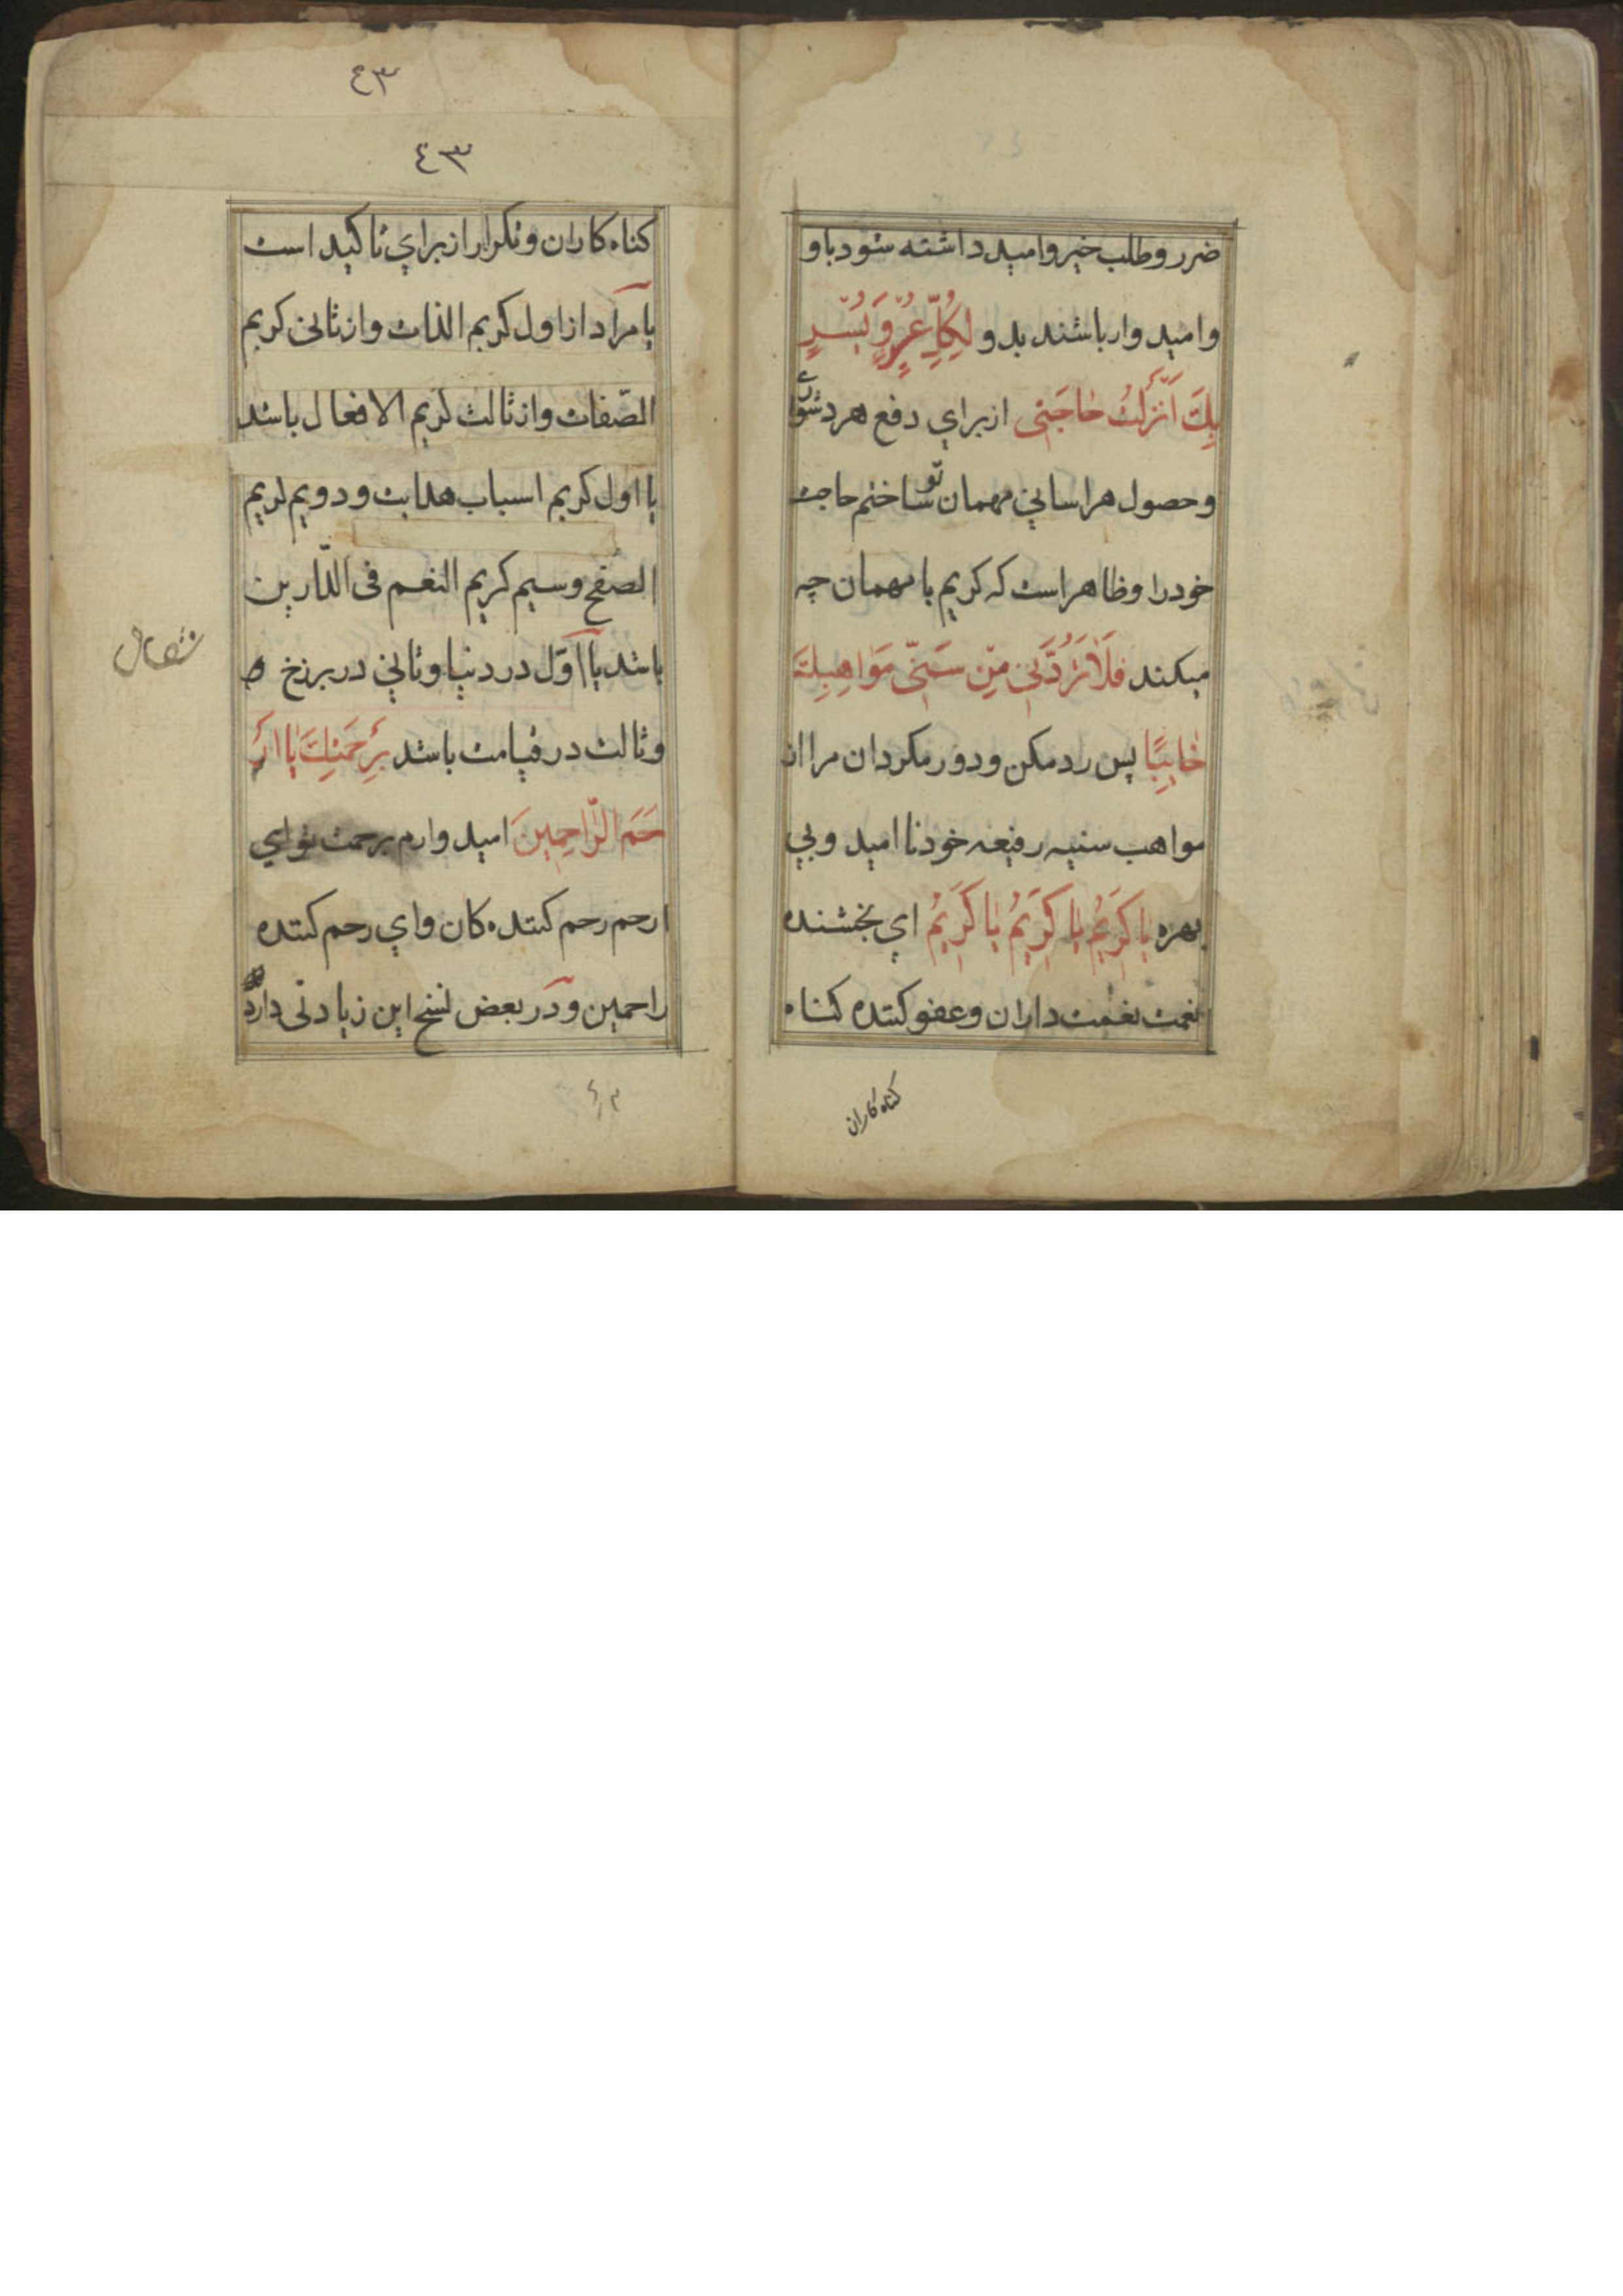 ضرر و طلب خیر و امید داشته شود باو
و امید وار باشند بدو لِكُلِّ عُسْرٍ وَ يُسْرٍ
بِكَ اَنْزَلْتُ حٰاجَتی ازبرای دفع هر دشواری
و حصول هر اسانی مهمان تو ساختم حاجت
خود را و ظاهر است که کریم با مهمان چه
میکند فَلاٰ تَرُدَّنی مِنْ سَنِیِّ مَوٰاهِبِكَ
خٰایِبًا پس رد مکن و دور مکردان مرا از
مواهب سنیه رفیعه خود نا امید و بی
بهره یٰا كَرَیمُ یٰا كَرَیمُ یٰا كَرَیمُ ای بخشنده
نعمت نعمت داران و عفو کننده کناه
کناه کاران
٤٣
٤٣
کناه کاران و تکرار از برای تاکید است
یا مراد از اول کریم الذات و از ثانی کریم
الصّفات و از ثالث کریم الافعال باشد
یا اول کریم اسباب هدایت و دویم کریم
الصفح و سیم کریم النعم فی الدّارین
باشد یا اوّل در دنیا و ثانی در برزخ
و ثالث در قیامت باشد بِرَحْمَتِكَ یٰا اَرْ
حَمَ الرّٰاحِمِینَ امید وارم برحمت تو ای
ارحم رحم کننده کان و ای رحم کننده
راحمین و در بعض نسخ این زیادتی دارد
٤٣